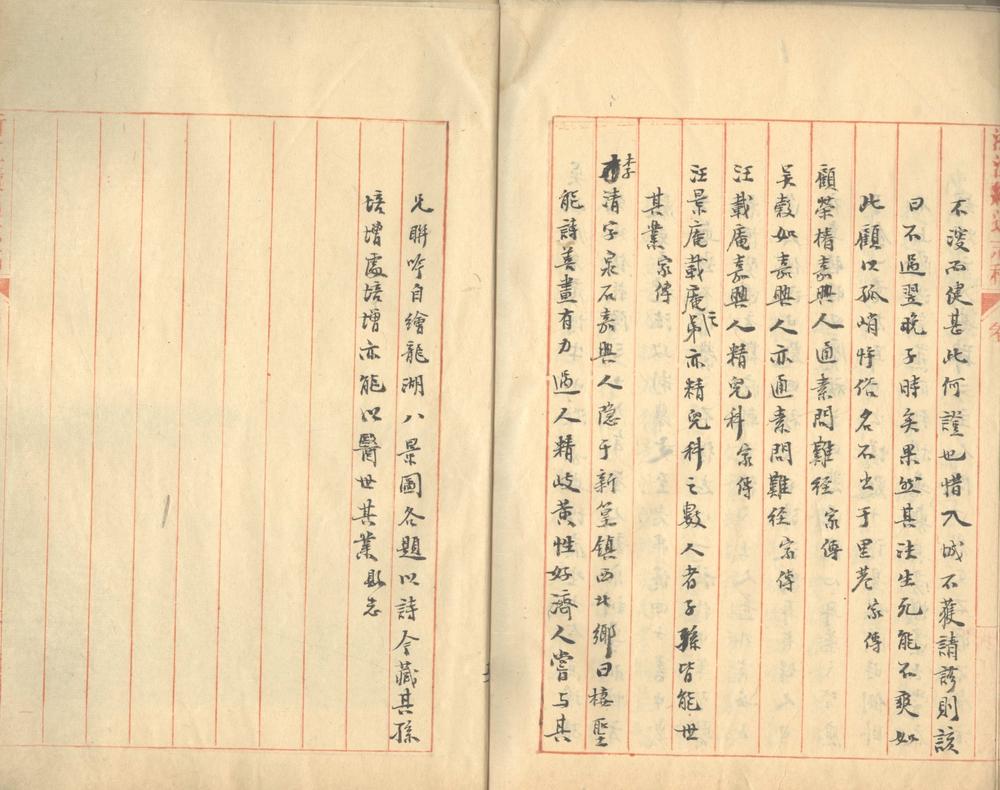 不溲而健甚此何證也惜入城不獲請診則該
曰不過翌晚子時矣果然其決生死能不爽如
此顧以孤峭忤俗名不出于里巷家傳
顧榮椿嘉興人通素問難經家傳
吴穀如嘉興人亦通素問難経家傳
汪載庵嘉興人精兒科家傳
汪景庵載庵弟亦精兒科之數人者子孫皆能世
其業家傳
李清字泉石嘉興人隐于新篁镇西北鄉曰棲聖
能詩善畫有力過人精歧黄性好濟人嘗与其
兄聨吟自繪龍湖八景圖各題以詩今藏其孫
培增處培增亦能以醫世其業縣志